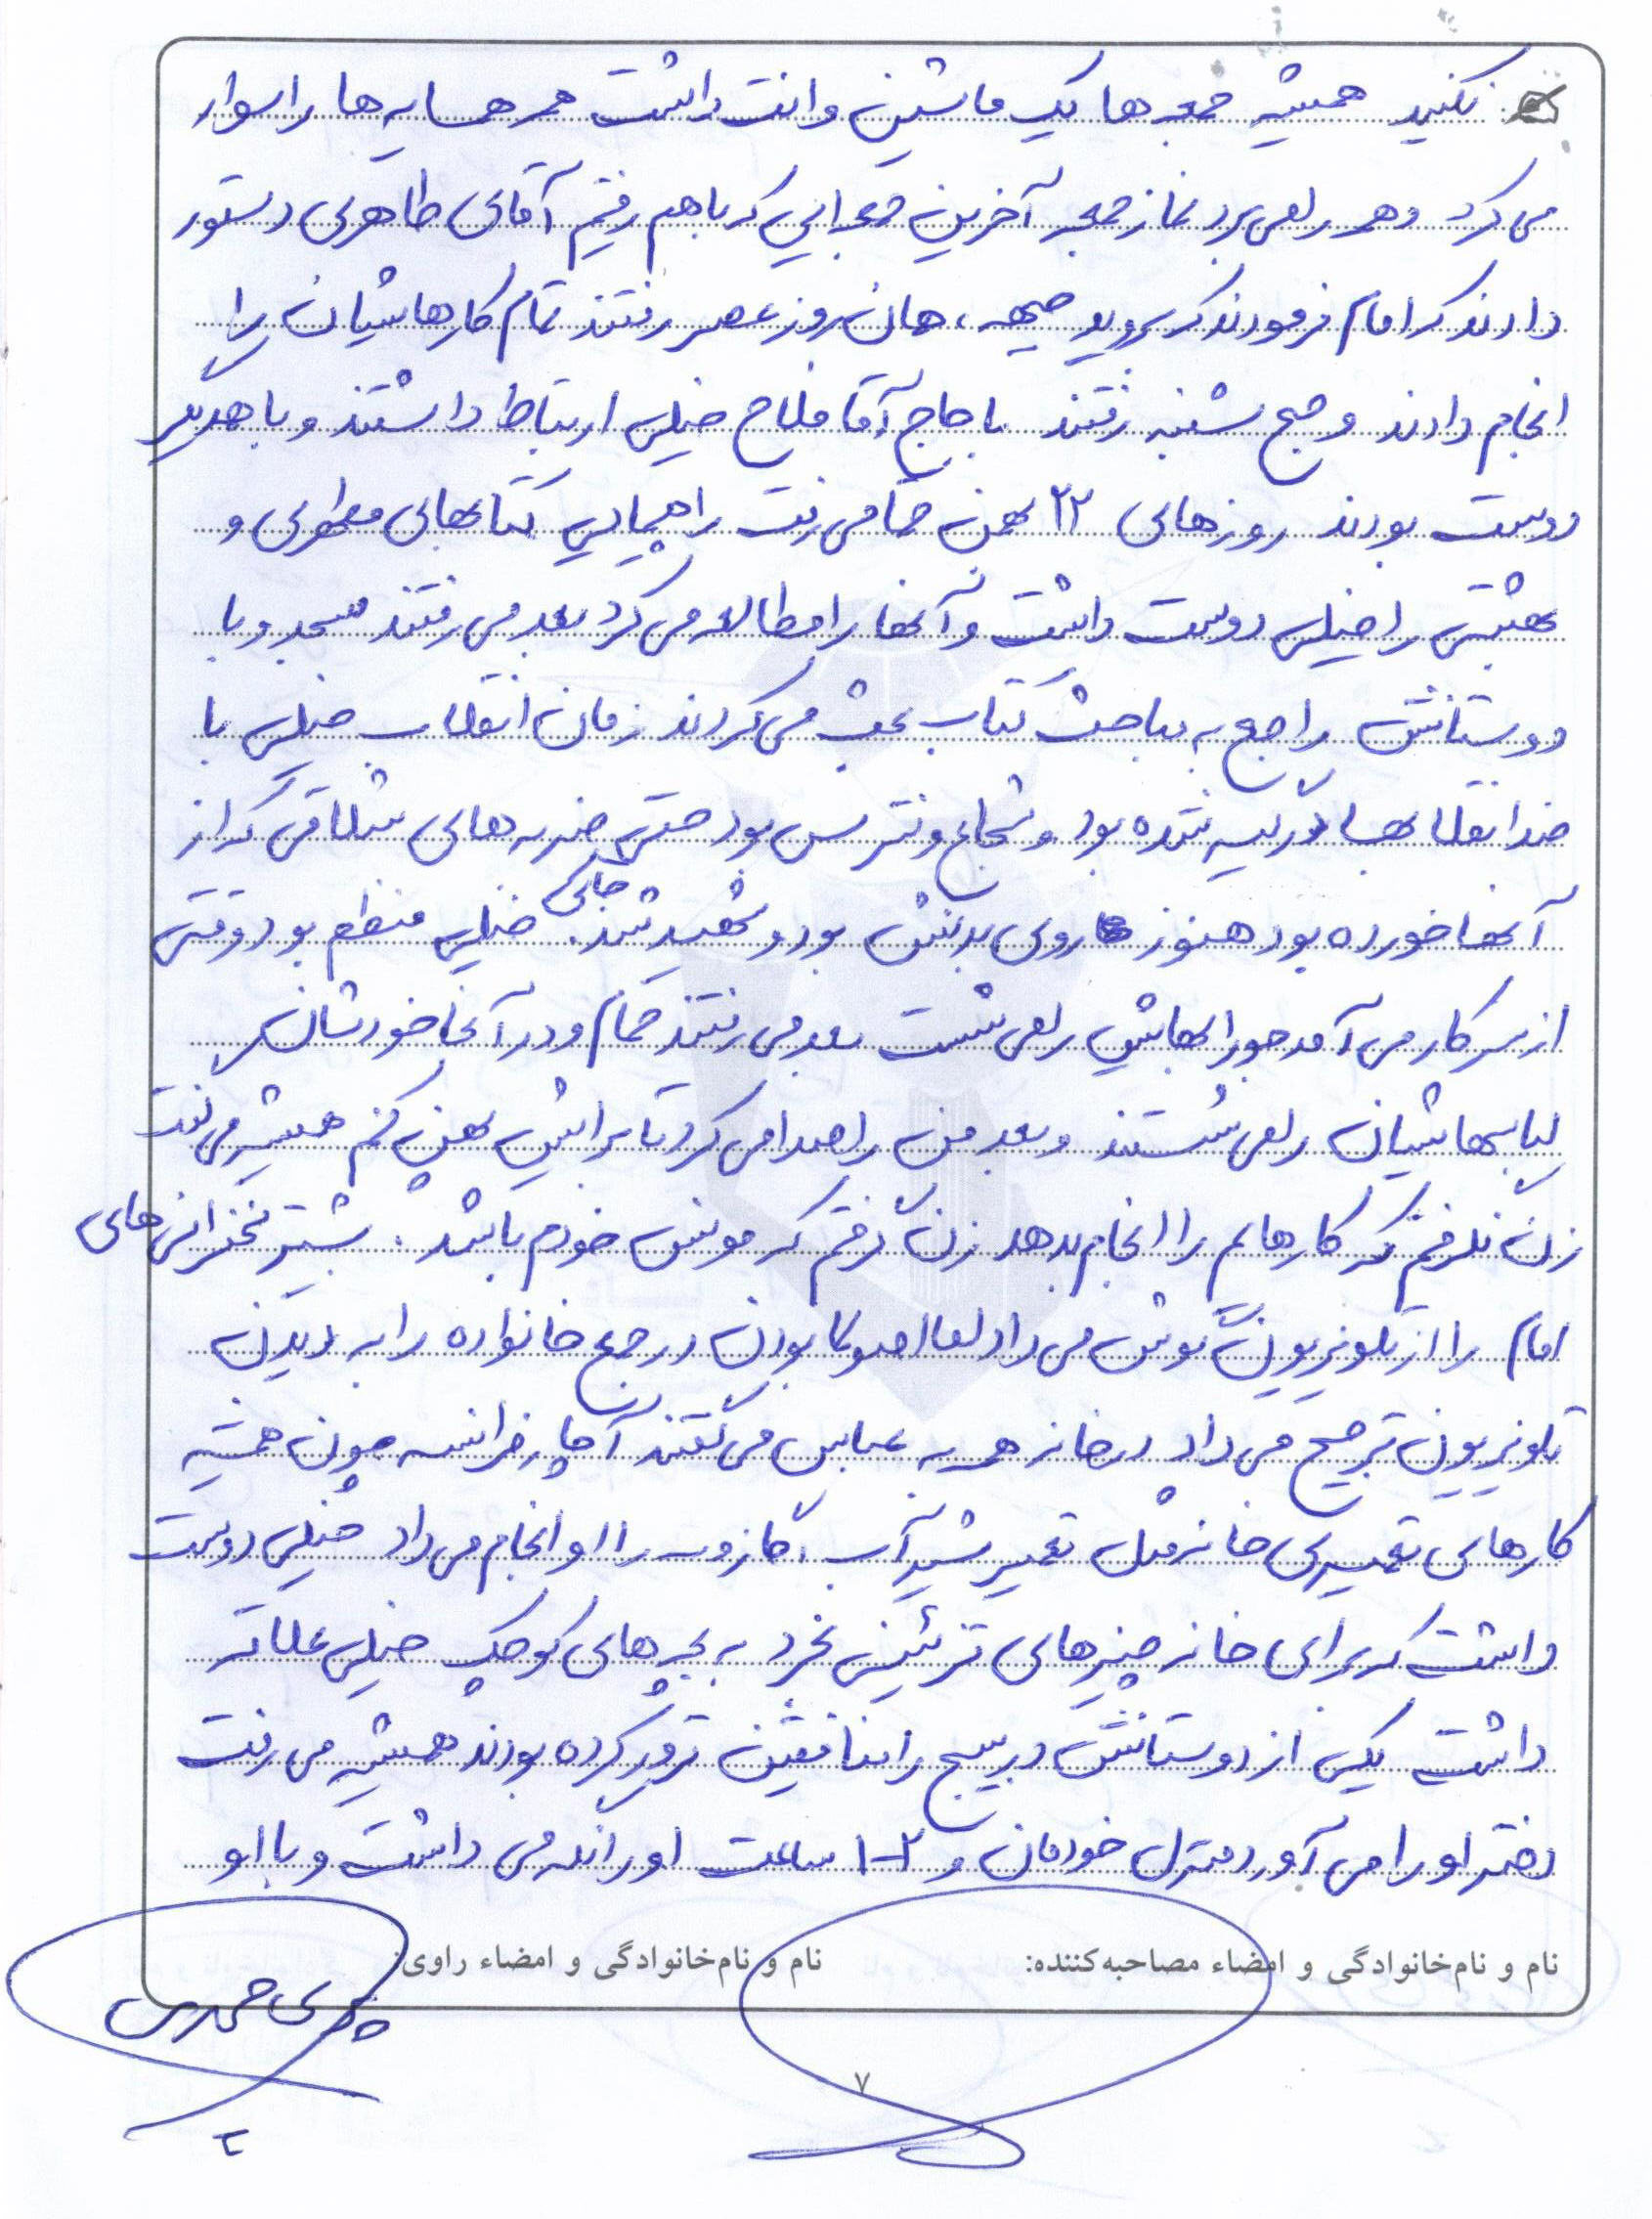 نکنید همیشه جمعه ها یک ماشین وانت داشت همه همسایه ها را سوار
می کرد و همه را می برد نماز جمعه آخرین جمعه ایی که باهم رفتیم آقای طاهری دستور
دادند که امام فرمودند که بروید جبهه، همان روز عصر رفتند تمام کارهایشان را
انجام دادند و صبح شنبه رفتند با حاج آقا فلاح خیلی ارتباط داشتند و با همدیگر
دوست بودند روزهای ۲۲ بهمن حتما می رفت راهپیمایی کتابهای مطهری و
بهشتی را خیلی دوست داشت و آنها را مطالعه می کرد بعد می رفتند مسجد و با
دوستانش راجع به مباحث کتاب بحث می کردند زمان انقلاب خیلی با
ضد انقلابها درگیر شده بود و شجاع و نترس بود حتی ضربه های شلاقی که از
آنها خورده بود هنوز جای روی بدنش بود و شهید شد. خیلی منظم بود وقتی
از سر کار می آمد جورابهایش را می شست بعد می رفتند حمام و در آنجا خودشان
لباسهایشان را می شستند و بعد من را صدا می کرد تا برایش پهن کنم همیشه می گفت
زن نگرفتم که کارهایم را انجام بدهد زن گرفتم که مونس خودم باشد. بیشتر سخنرانی های
امام را از تلویزیون گوش می داد بودن در جمع خانواده را به دیدن
تلویزیون ترجیح می داد در خانه همه به عباس می گفتند آچار فرانسه چون همیشه
کارهای تعمیری خانه مثل تعمیر شیرآب، گاز و... را او انجام می داد خیلی دوست
داشت که برای خانه چیزهای تزئینی بخرد به بچه های کوچک خیلی علاقه
داشت یکی از دوستانش در بسیج را منافقین ترور کرده بودند همیشه می رفت
دختر او را می آورد منزل خودمان و ۲-۱ ساعت او را نگه می داشت و با او
نام و نام‌خانوادگی و امضاء مصاحبه‌کننده: نام و نام‌خانوادگی و امضاء راوی:
۷
۲